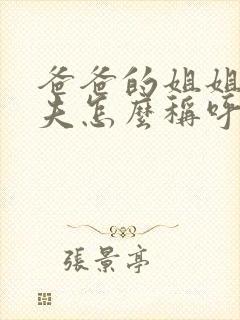 爸爸的姐姐
夫怎麼稱呼
張景亭